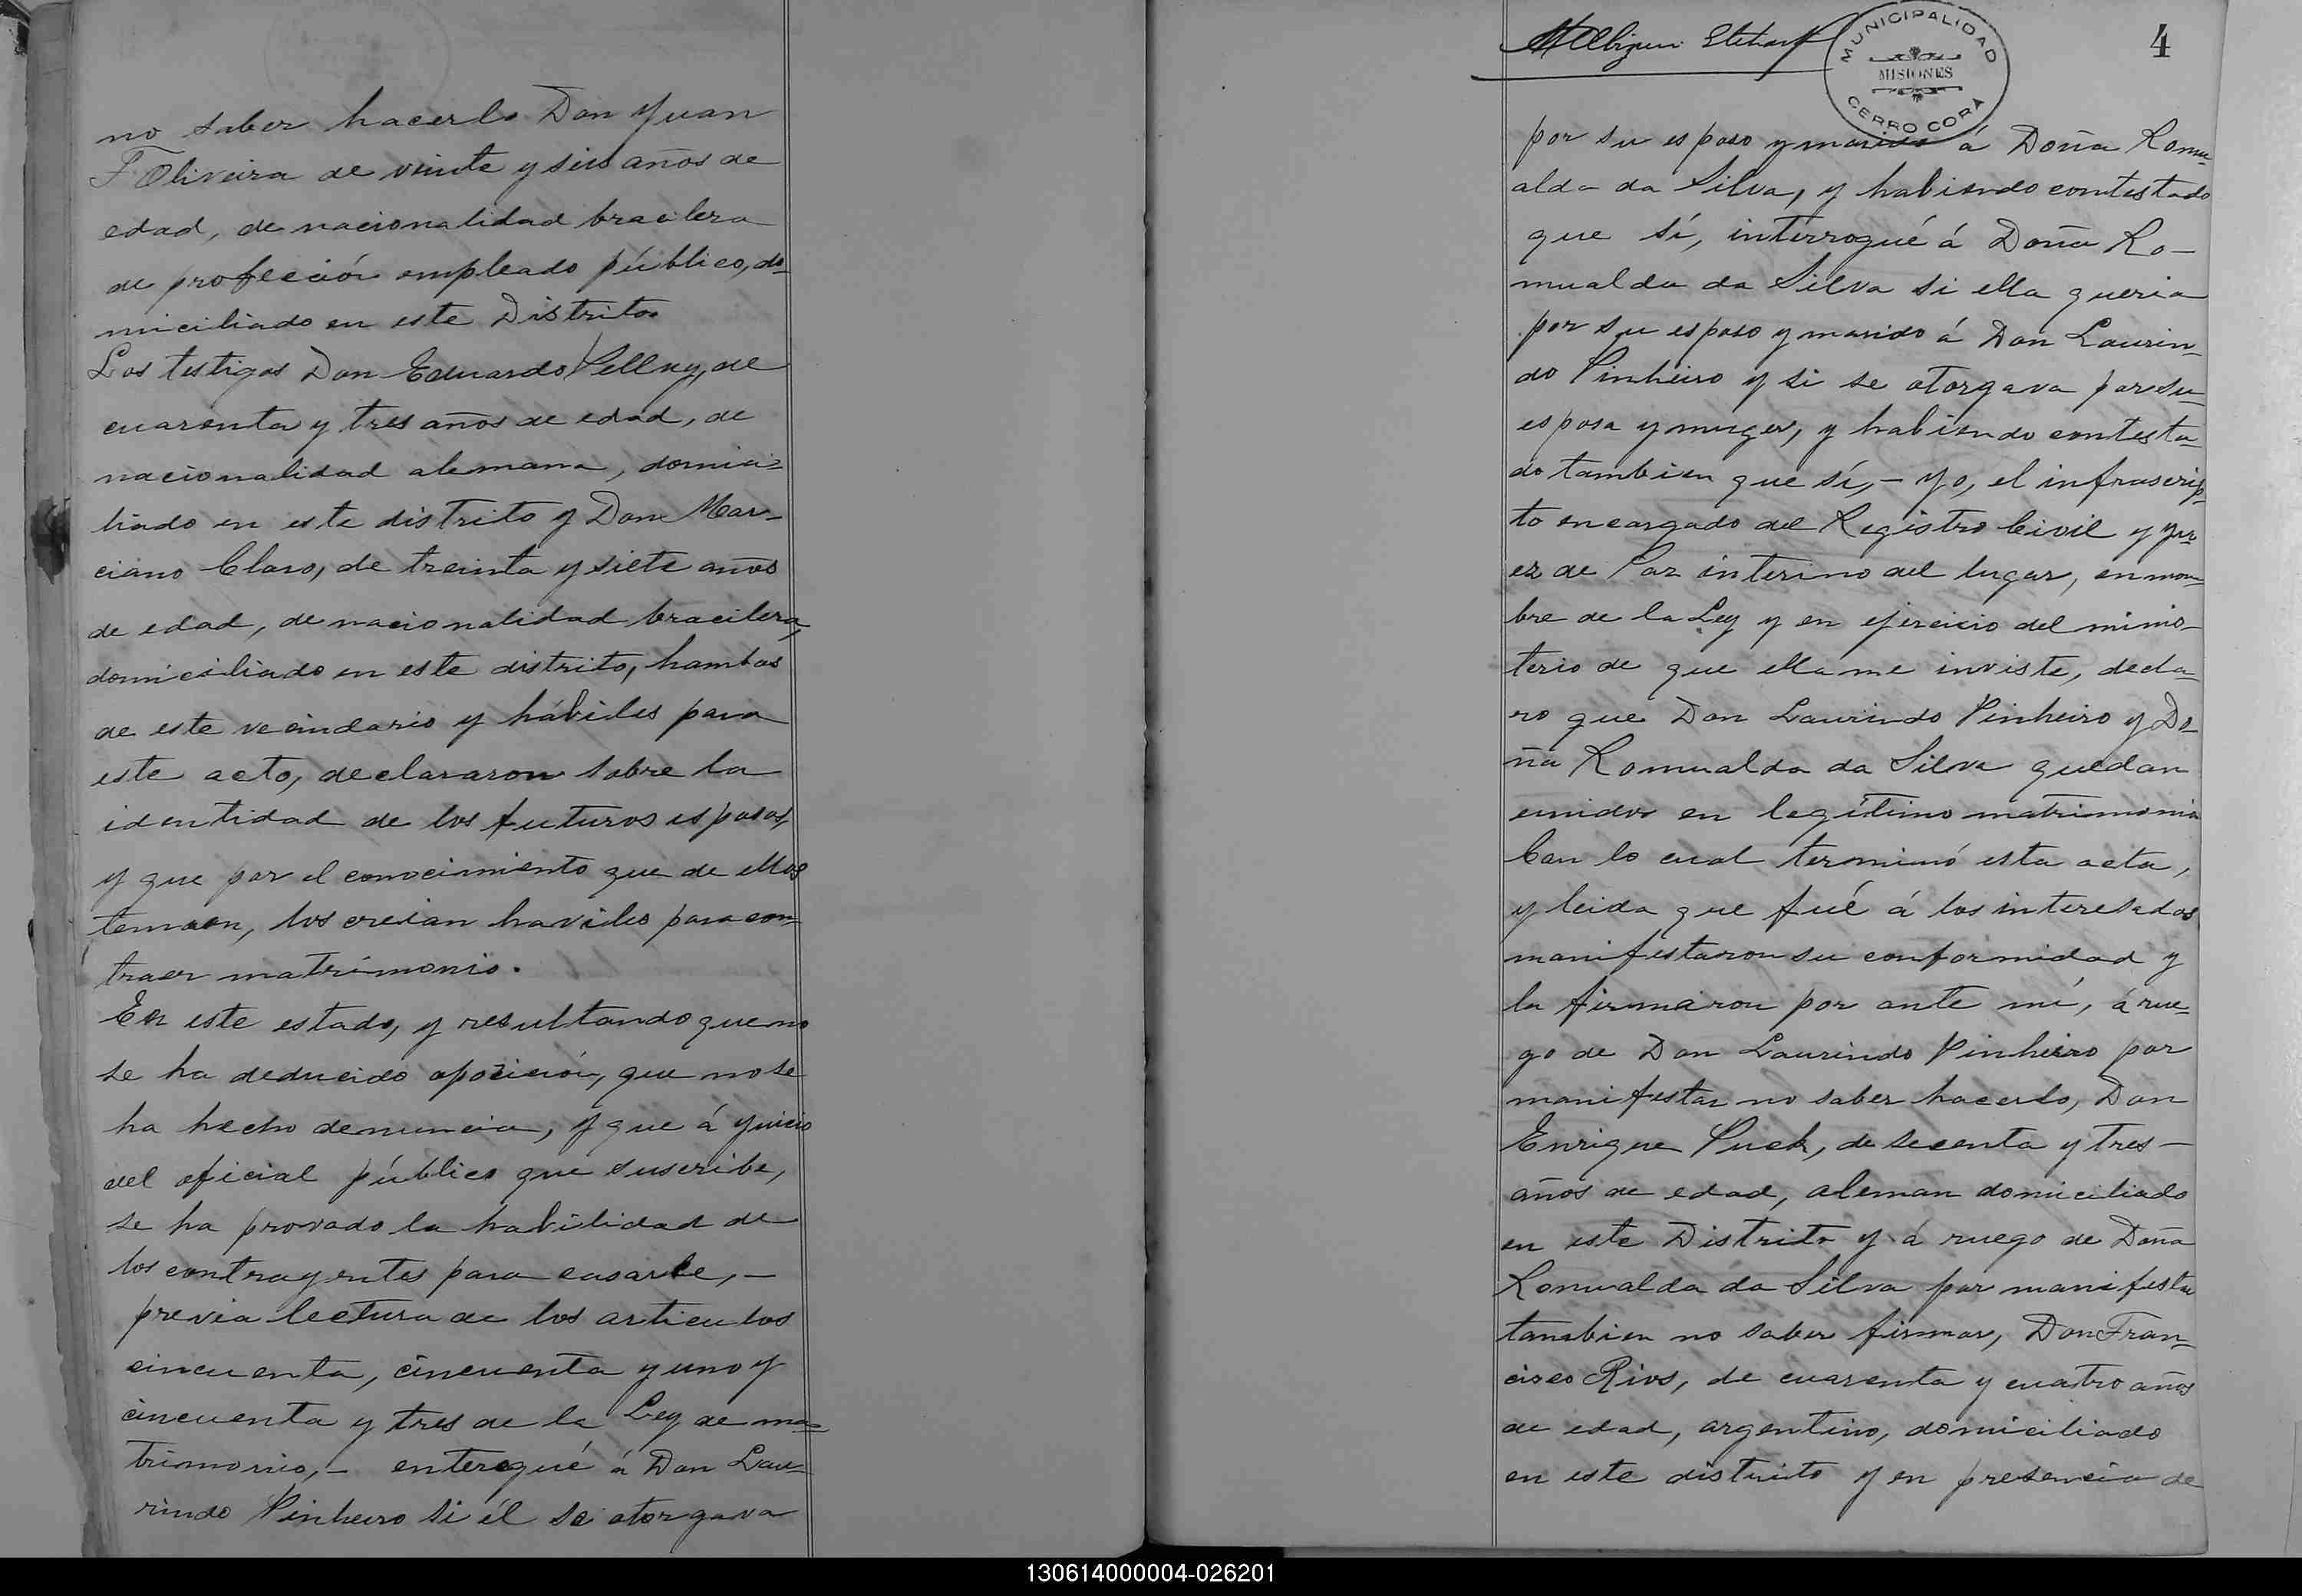 no saber hacerlo Don Yuan
F. Oliveira de veinte y seis años de
edad, de nacionalidad bracilera
de profeción empleado público, do-
miciliado en este Distrito.
Los testigos Don Eduardo Pelluy, de
cuarenta y tres años de edad, de
nacionalidad alemana, domici-
liado en este distrito y Don Mar-
ciano Claro, de treinta y siete años
de edad, de nacionalidad bracilera,
domiciliado en este distrito, hambos
de este vecindario y hábiles para
este acto, declararon sobre la
identidad de los futuros esposos,
y que por el conocimiento que de ellos
tenian, los creian haviles para con-
traer matrimonio.
En este estado, y resultando que no
se ha deducido oposición, que no se
ha hecho denuncia, y que á yuicio
del oficial público que suscribe,
se ha provado la habilidad de
los contrayentes para casarce, -
previa lectura de los articulos
cincuenta, cincuenta y uno y
cincuenta y tres de la Ley de ma-
trimonio, - enterogué á Don Lau-
rindo Pinheiro si él se otorgava
MUNICIPALIDAD
MISIONES
CERRO CORÁ
4
por su esposo y marido á Doña Romu-
alda da Silva, y habiendo contestado
que sí, interrogué á Doña Ro-
mualda da Silva si ella queria
por su esposo y marido á Don Laurin-
do Pinheiro y si se otorgava por su
esposa y muger, y habiendo contesta-
do tambien que sí, - Yo, el infrascrip-
to encargado del Registro Civil y Yu-
ez de Paz interino del lugar, en nom-
bre de la Ley y en ejercicio del minis-
terio de que ella me inviste, decla-
ro que Don Laurindo Pinheiro y Do-
ña Romualda da Silva quedan
unidos en legítimo matrimonio
Con lo cual terminó esta acta,
y leida que fué á los interesados
manifestaron su conformidad y
la firmaron por ante mí, á rue-
go de Don Laurindo Pinheiro por
manifestar no saber hacerlo, Don
Enrique Puck, de secenta y tres -
años de edad, aleman domiciliado
en este Distrito y á ruego de Doña
Romualda da Silva por manifestar
tambien no saber firmar, Don Fran-
cisco Rios, de cuarenta y cuatro años
de edad, argentino, domiciliado
en este distrito y en presencia de
130614000004-026201